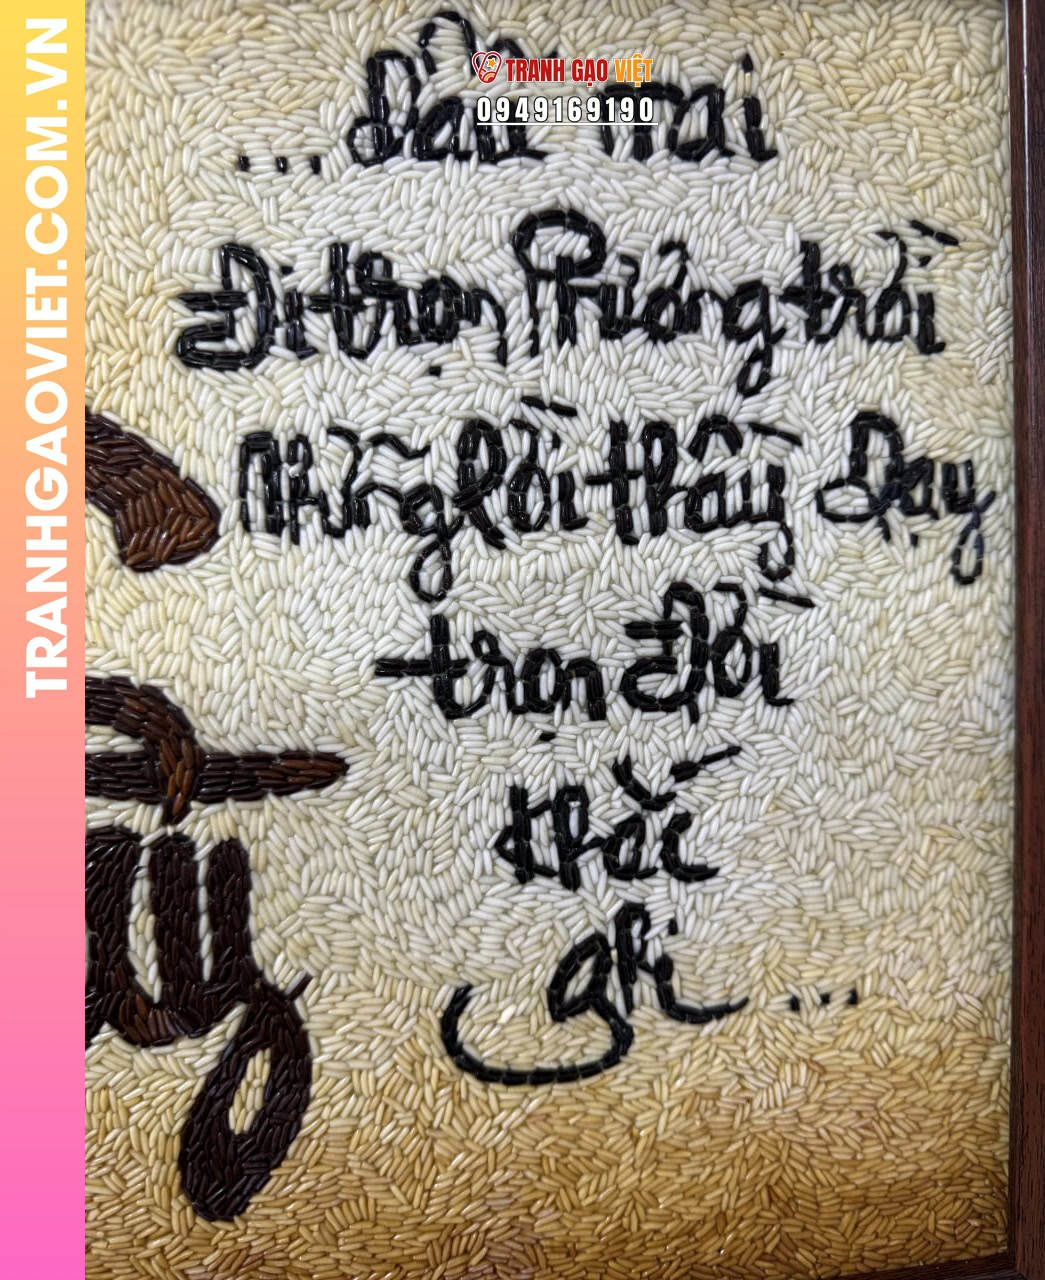 TRANHGAOVIET.COM.VN
TRANH GẠO VIỆT
0949169190
... Dẫu mai
Đi trọn Phương trời
Những lời thầy Dạy
trọn đời
khắc
ghi ...